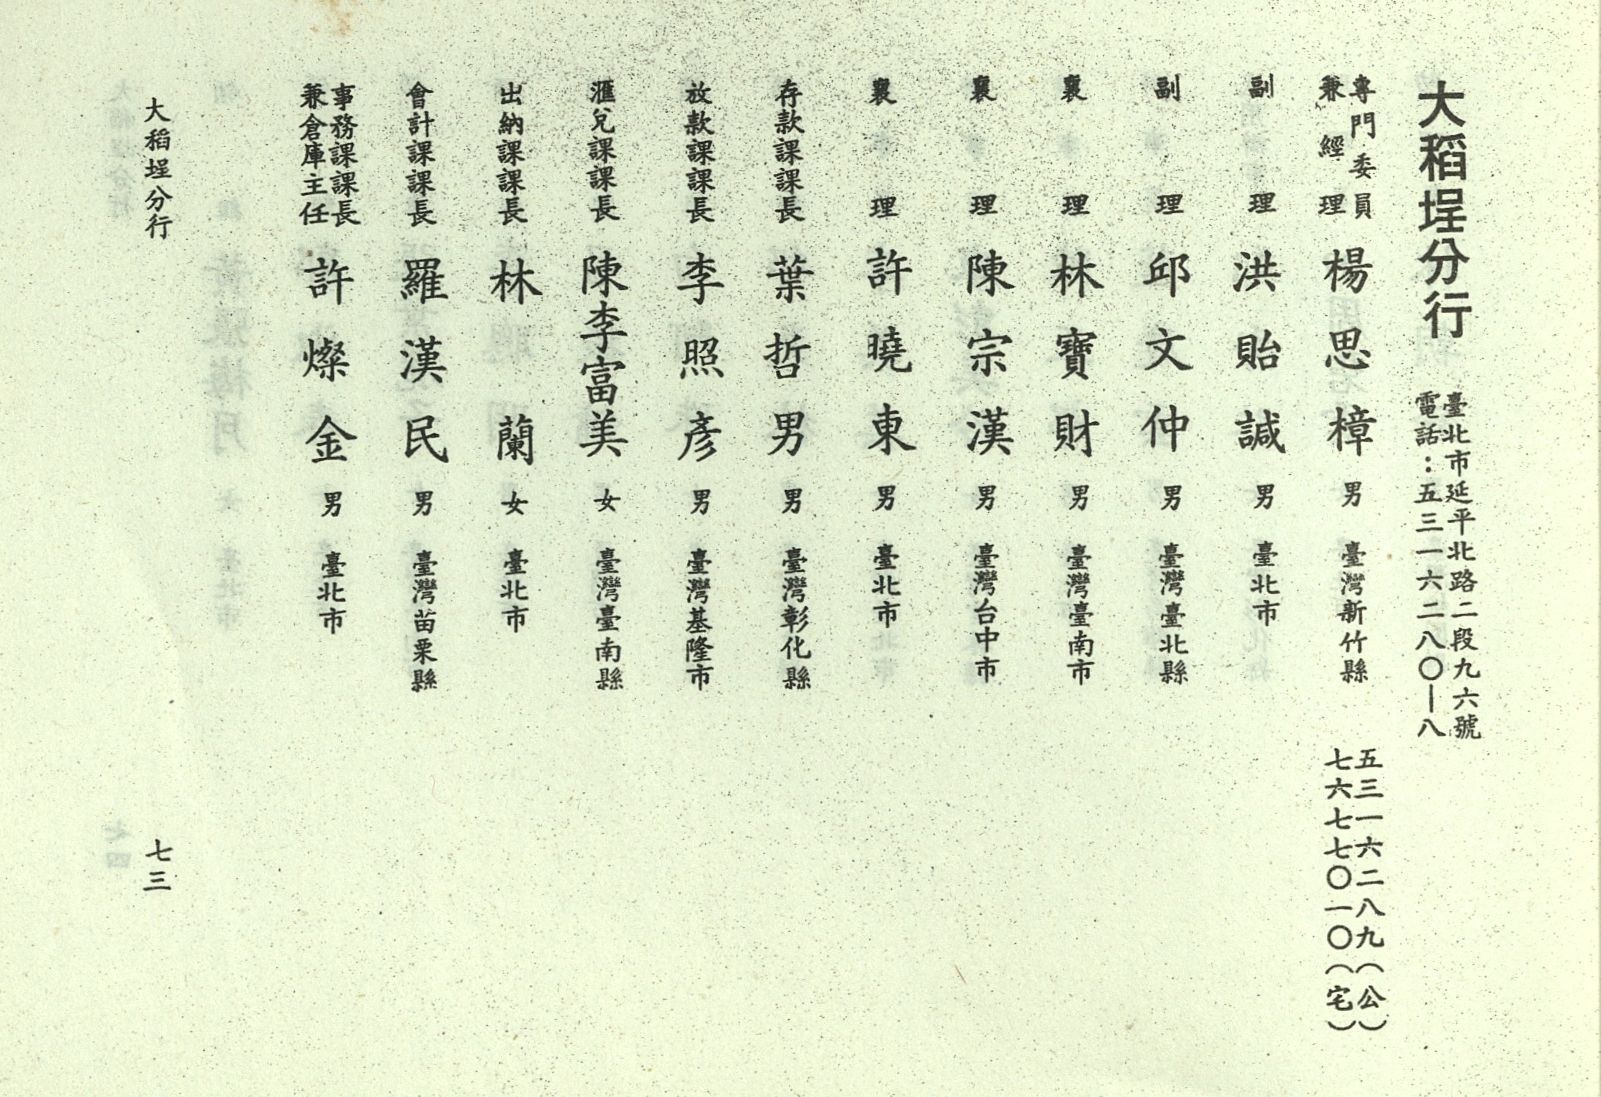 大稻埕分行
臺北市延平北路二段九六號
電話：五三一六二八〇—八
專門委員
兼經理 楊思樟 男 臺灣新竹縣
五三一六二八九（公）
七六七七〇一〇（宅）
副理 洪貽諴 男 臺北市
副理 邱文仲 男 臺灣臺北縣
襄理 林寶財 男 臺灣臺南市
襄理 陳宗漢 男 臺灣台中市
襄理 許曉東 男 臺北市
存款課課長 葉哲男 男 臺灣彰化縣
放款課課長 李照彥 男 臺灣基隆市
滙兌課課長 陳李富美 女 臺灣臺南縣
出納課課長 林蘭 女 臺北市
會計課課長 羅漢民 男 臺灣苗栗縣
事務課課長
兼倉庫主任 許燦金 男 臺北市
大稻埕分行
七三